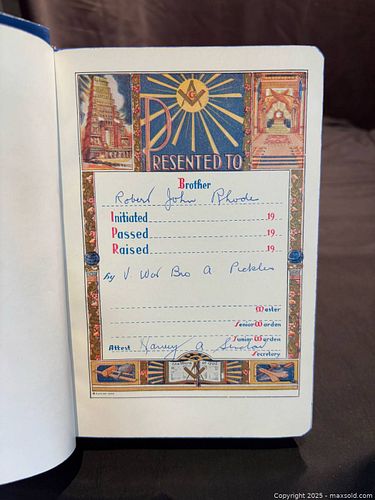 G
PRESENTED TO
Brother
Robert John Rhode
Initiated 19
Passed 19
Raised 19
by V. Wor Bro A Pickles
Master
Senior Warden
Junior Warden
Attest Harvey A Sinclair
Secretary
Copyright 2025 - maxsold.com